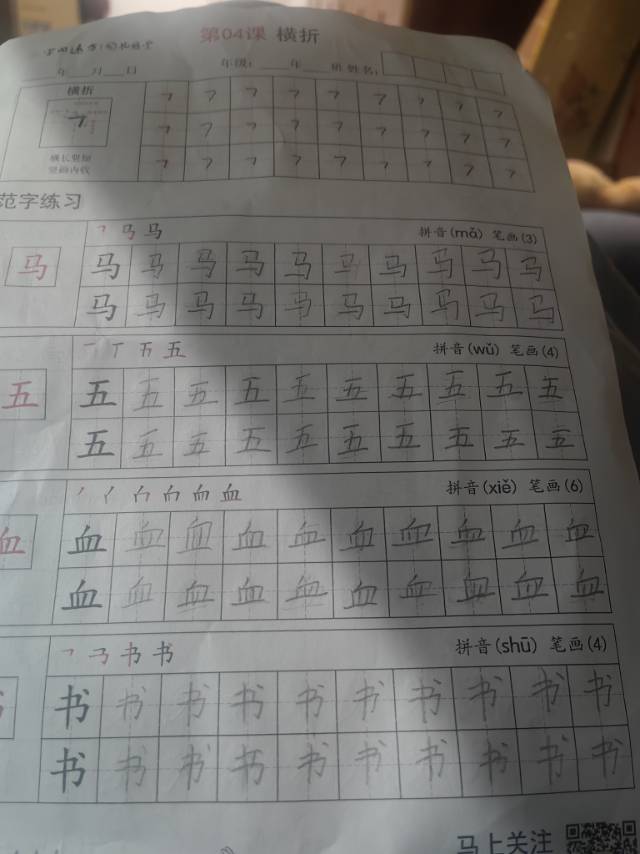 第04课 横折
年 月 日 年级: 年 班 姓名:
横折
横长竖短
竖画内收
范字练习
马 拼音(mǎ) 笔画(3)
马 马 马 马 马 马 马 马 马 马 马
马 马 马 马 马 马 马 马 马 马
五 拼音(wǔ) 笔画(4)
五 五 五 五 五 五 五 五 五 五 五
五 五 五 五 五 五 五 五 五 五
血 拼音(xiě) 笔画(6)
血 血 血 血 血 血 血 血 血 血 血
血 血 血 血 血 血 血 血 血 血
书 书 拼音(shū) 笔画(4)
书 书 书 书 书 书 书 书 书 书
书 书 书 书 书 书 书 书 书 书
马上关注